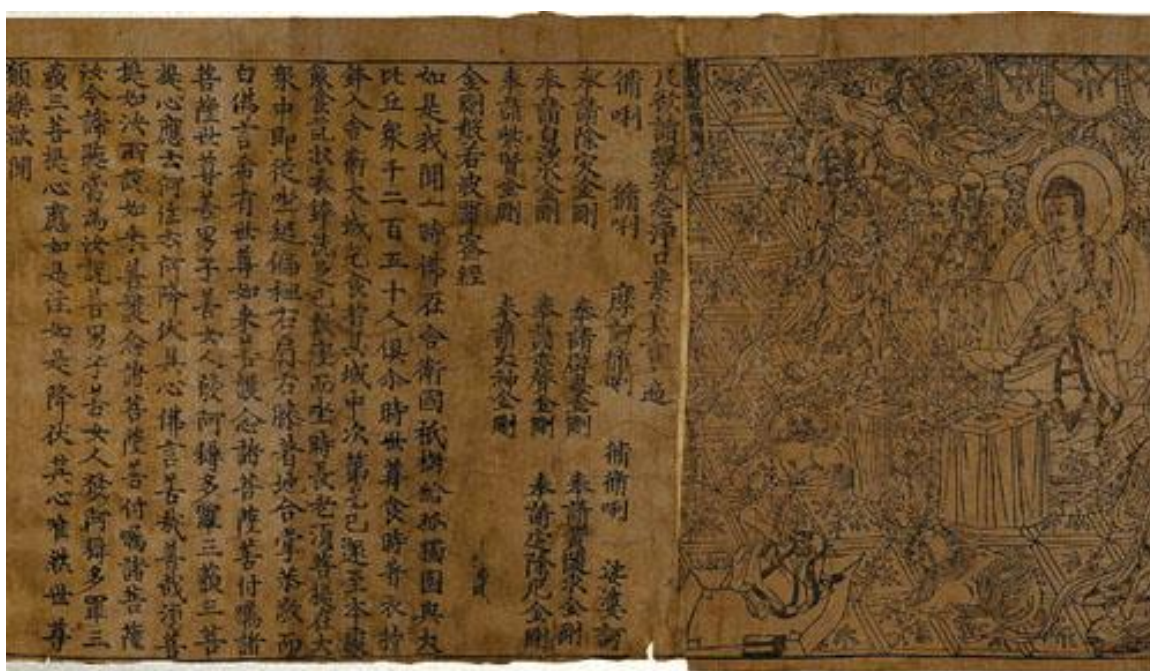 凡欲讀經先念淨口業真言一遍
脩唎 脩唎 摩訶脩唎 脩脩唎 娑婆訶
奉請除災金剛 奉請辟毒金剛 奉請黃隨求金剛
奉請白淨水金剛 奉請赤聲金剛 奉請定除厄金剛
奉請紫賢金剛 奉請大神金剛
金剛般若波羅蜜經
如是我聞一時佛在舍衛國祇樹給孤獨園與大
比丘衆千二百五十人俱尒時世尊食時著衣持
鉢入舍衛大城乞食於其城中次第乞已還至本處
飯食訖收衣鉢洗足已敷座而坐時長老須菩提在大
衆中即從座起偏袒右肩右膝著地合掌恭敬而
白佛言希有世尊如來善護念諸菩薩善付囑諸
菩薩世尊善男子善女人發阿耨多羅三藐三菩
提心應云何住云何降伏其心佛言善哉善哉須菩
提如汝所說如來善護念諸菩薩善付囑諸菩薩
汝今諦聽當為汝說善男子善女人發阿耨多羅三
藐三菩提心應如是住如是降伏其心唯然世尊
願樂欲聞